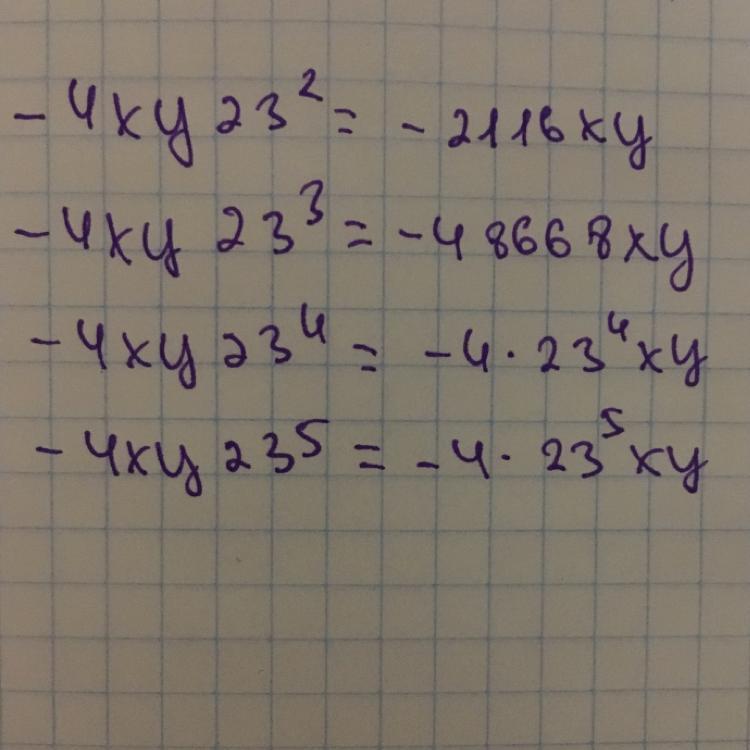 -4xy 23² = -2116xy
-4xy 23³ = -48668xy
-4xy 23⁴ = -4·23⁴xy
-4xy 23⁵ = -4·23⁵xy